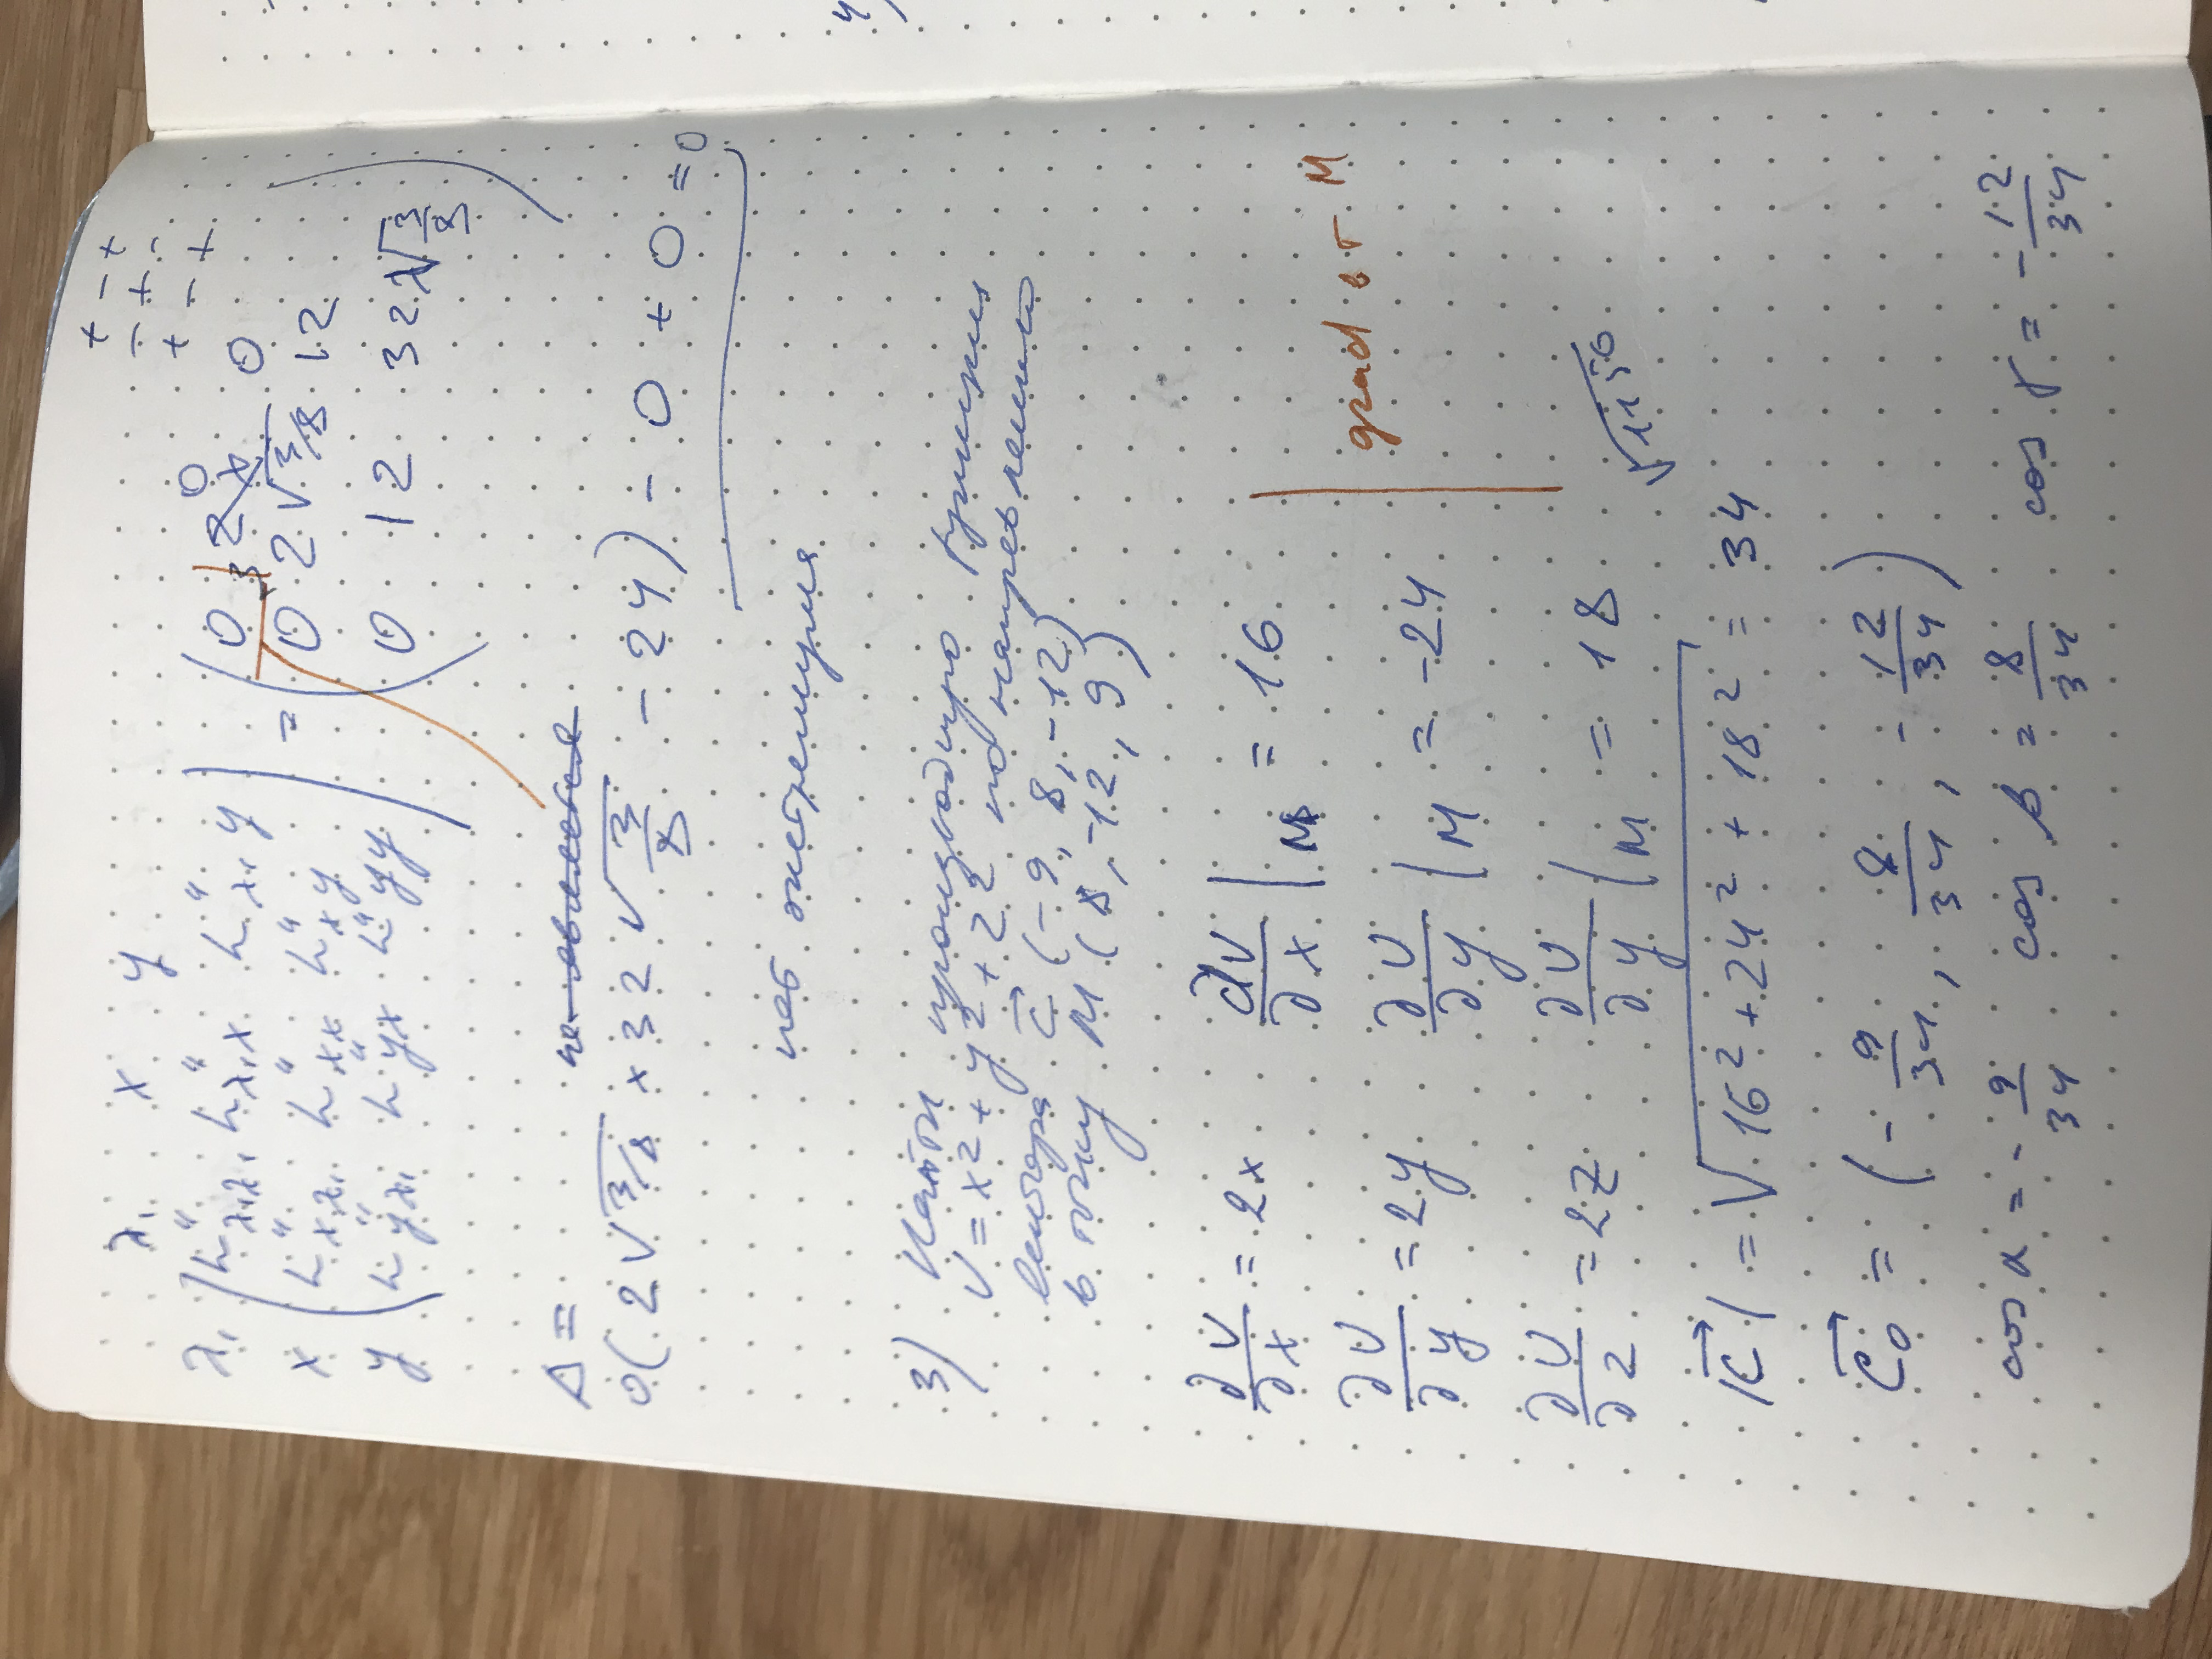 + - +
- + -
+ - +
λ₁ x y
λ₁ ( L''λ₁λ₁ L''λ₁x L''λ₁y ) = ( 0 0 0
x L''xλ₁ L''xx L''xy 0 2√3/8 12
y L''yλ₁ L''yx L''yy ) 0 12 32λ√3/8 )
Δ = не является
0(2√3/8 × 32√3/8 - 24) - 0 + 0 = 0
нет экстремума
3) Найти производную функции
U = x² + y² + z² по направлению
вектора c⃗ (-9, 8, -12)
в точку M (8, -12, 9)
∂U/∂x = 2x ∂U/∂x |M = 16
grad в т M
∂U/∂y = 2y ∂U/∂y |M = -24
∂U/∂z = 2z ∂U/∂y |M = 18
√1156
|c⃗| = √16² + 24² + 18² = 34
c⃗₀ = (- 9/34, 8/34, - 12/34)
cos α = - 9/34 cos β = 8/34 cos γ = - 12/34